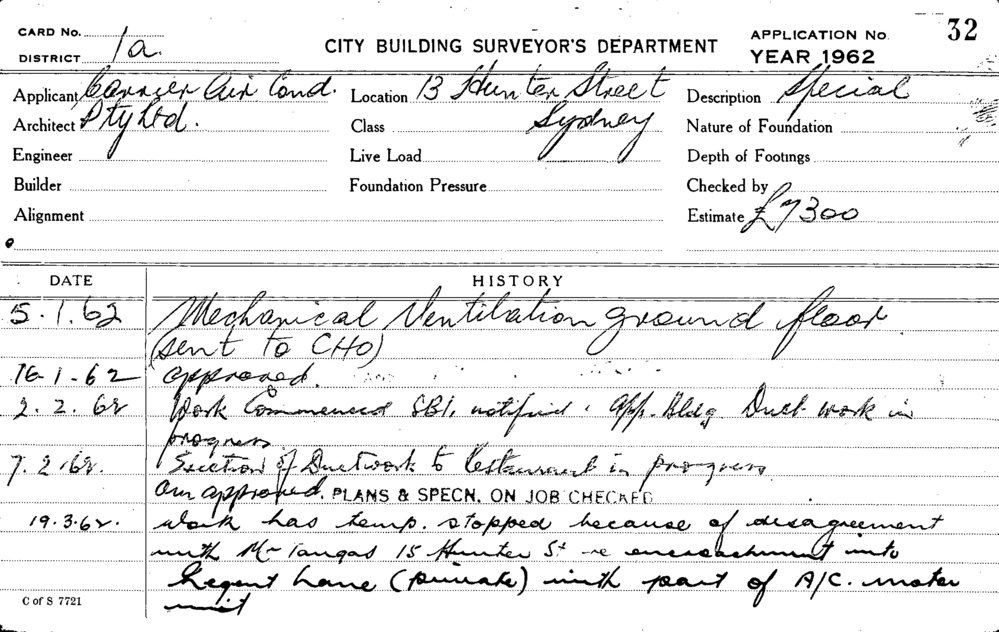 CARD No.
DISTRICT 1a.
CITY BUILDING SURVEYOR'S DEPARTMENT
APPLICATION No. 32
YEAR 1962
Applicant Carrier Air Cond.
Location 13 Hunter Street
Description Special
Architect Pty Ltd.
Class Sydney
Nature of Foundation
Engineer
Live Load
Depth of Footings
Builder
Foundation Pressure
Checked by
Alignment
Estimate £7300
DATE HISTORY
5.1.62 Mechanical Ventilation ground floor
(sent to CHO)
16-1-62 approved.
2.2.62 Work Commenced SBI. notified. App. Bldg Duct work in
progress
7.2.62. Erection of Ductwork to restaurant in progress
approved. PLANS & SPECN. ON JOB CHECKED
19.3.62. work has temp. stopped because of disagreement
with Mr Tangas 15 Hunter St re encroachment into
Regent Lane (private) with part of A/C. motor
unit
C of S 7721